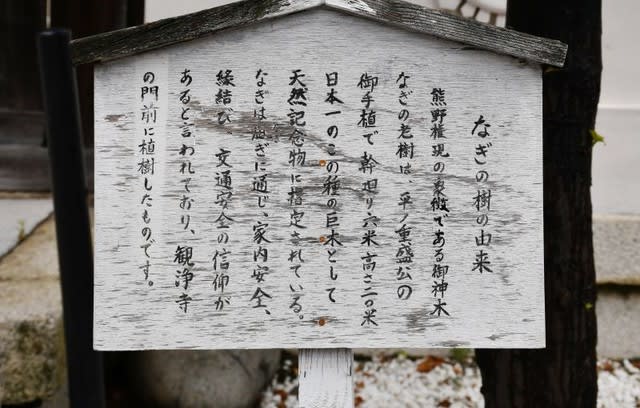 なぎの樹の由来
熊野権現の象徴である御神木
なぎの老樹は、平ノ重盛公の
御手植で、幹廻り六米高さ二〇米
日本一のこの種の巨木として
天然記念物に指定されている。
なぎは凪ぎに通じ、家内安全、
縁結び、交通安全の信仰が
あると言われており、観浄寺
の門前に植樹したものです。